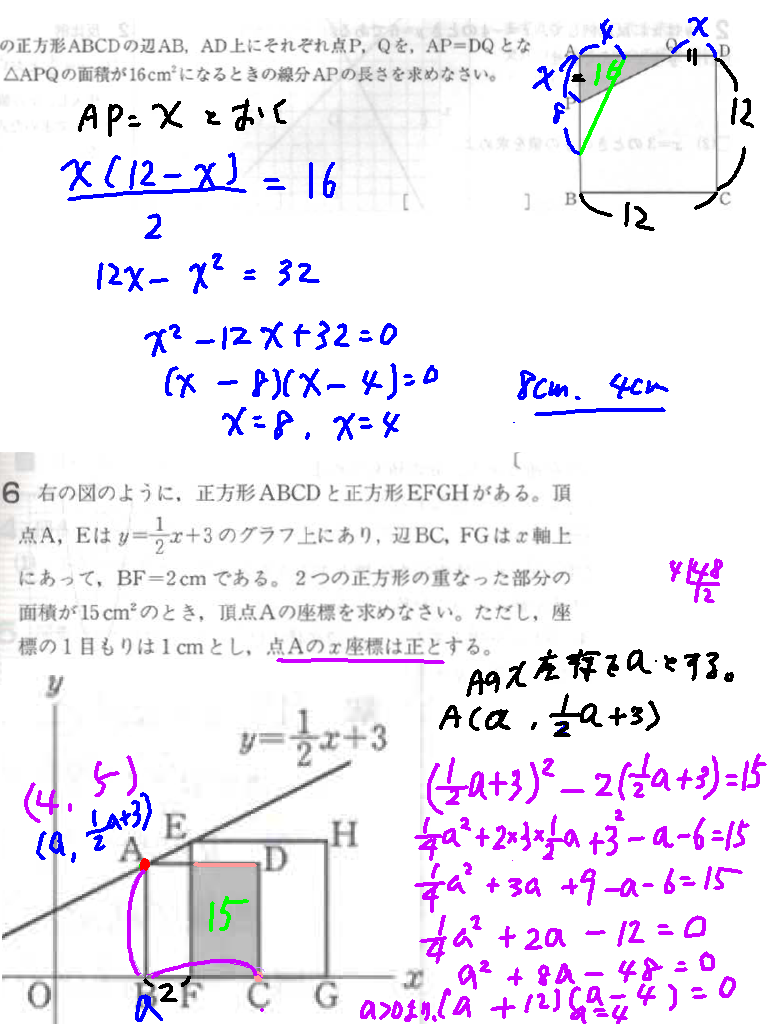 の正方形ABCDの辺AB，AD上にそれぞれ点P，Qを，AP=DQとな
△APQの面積が16cm²になるときの線分APの長さを求めなさい。
AP=xとおく
x(12-x)/2 = 16
12x - x² = 32
x² - 12x + 32 = 0
(x - 8)(x - 4) = 0
x = 8, x = 4
8cm. 4cm
[ ]
A 4 Q x D
x 16
P
8
12
B 12 C
6 右の図のように，正方形ABCDと正方形EFGHがある。頂
点A，Eは y=1/2x+3 のグラフ上にあり，辺BC，FGはx軸上
にあって，BF=2cmである。2つの正方形の重なった部分の
面積が15cm²のとき，頂点Aの座標を求めなさい。ただし，座
標の1目もりは1cmとし，点Aのx座標は正とする。
4)48
12
Aのx座標をaとする。
A(a, 1/2a+3)
(1/2a+3)² - 2(1/2a+3) = 15
1/4a² + 2×3×1/2a + 3² - a - 6 = 15
1/4a² + 3a + 9 - a - 6 = 15
1/4a² + 2a - 12 = 0
a² + 8a - 48 = 0
(a + 12)(a - 4) = 0
a>0より, a = 4
y
y=1/2x+3
(4, 5)
(a, 1/2a+3)
E H
A D
15
O B 2 F C G x
a